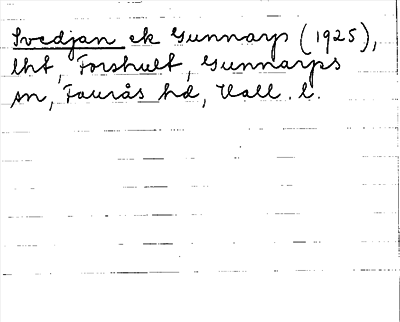 Svedjan ek Gunnarp (1925),
lht, Forshult, Gunnarps
sn, Faurås hd, Hall. l.